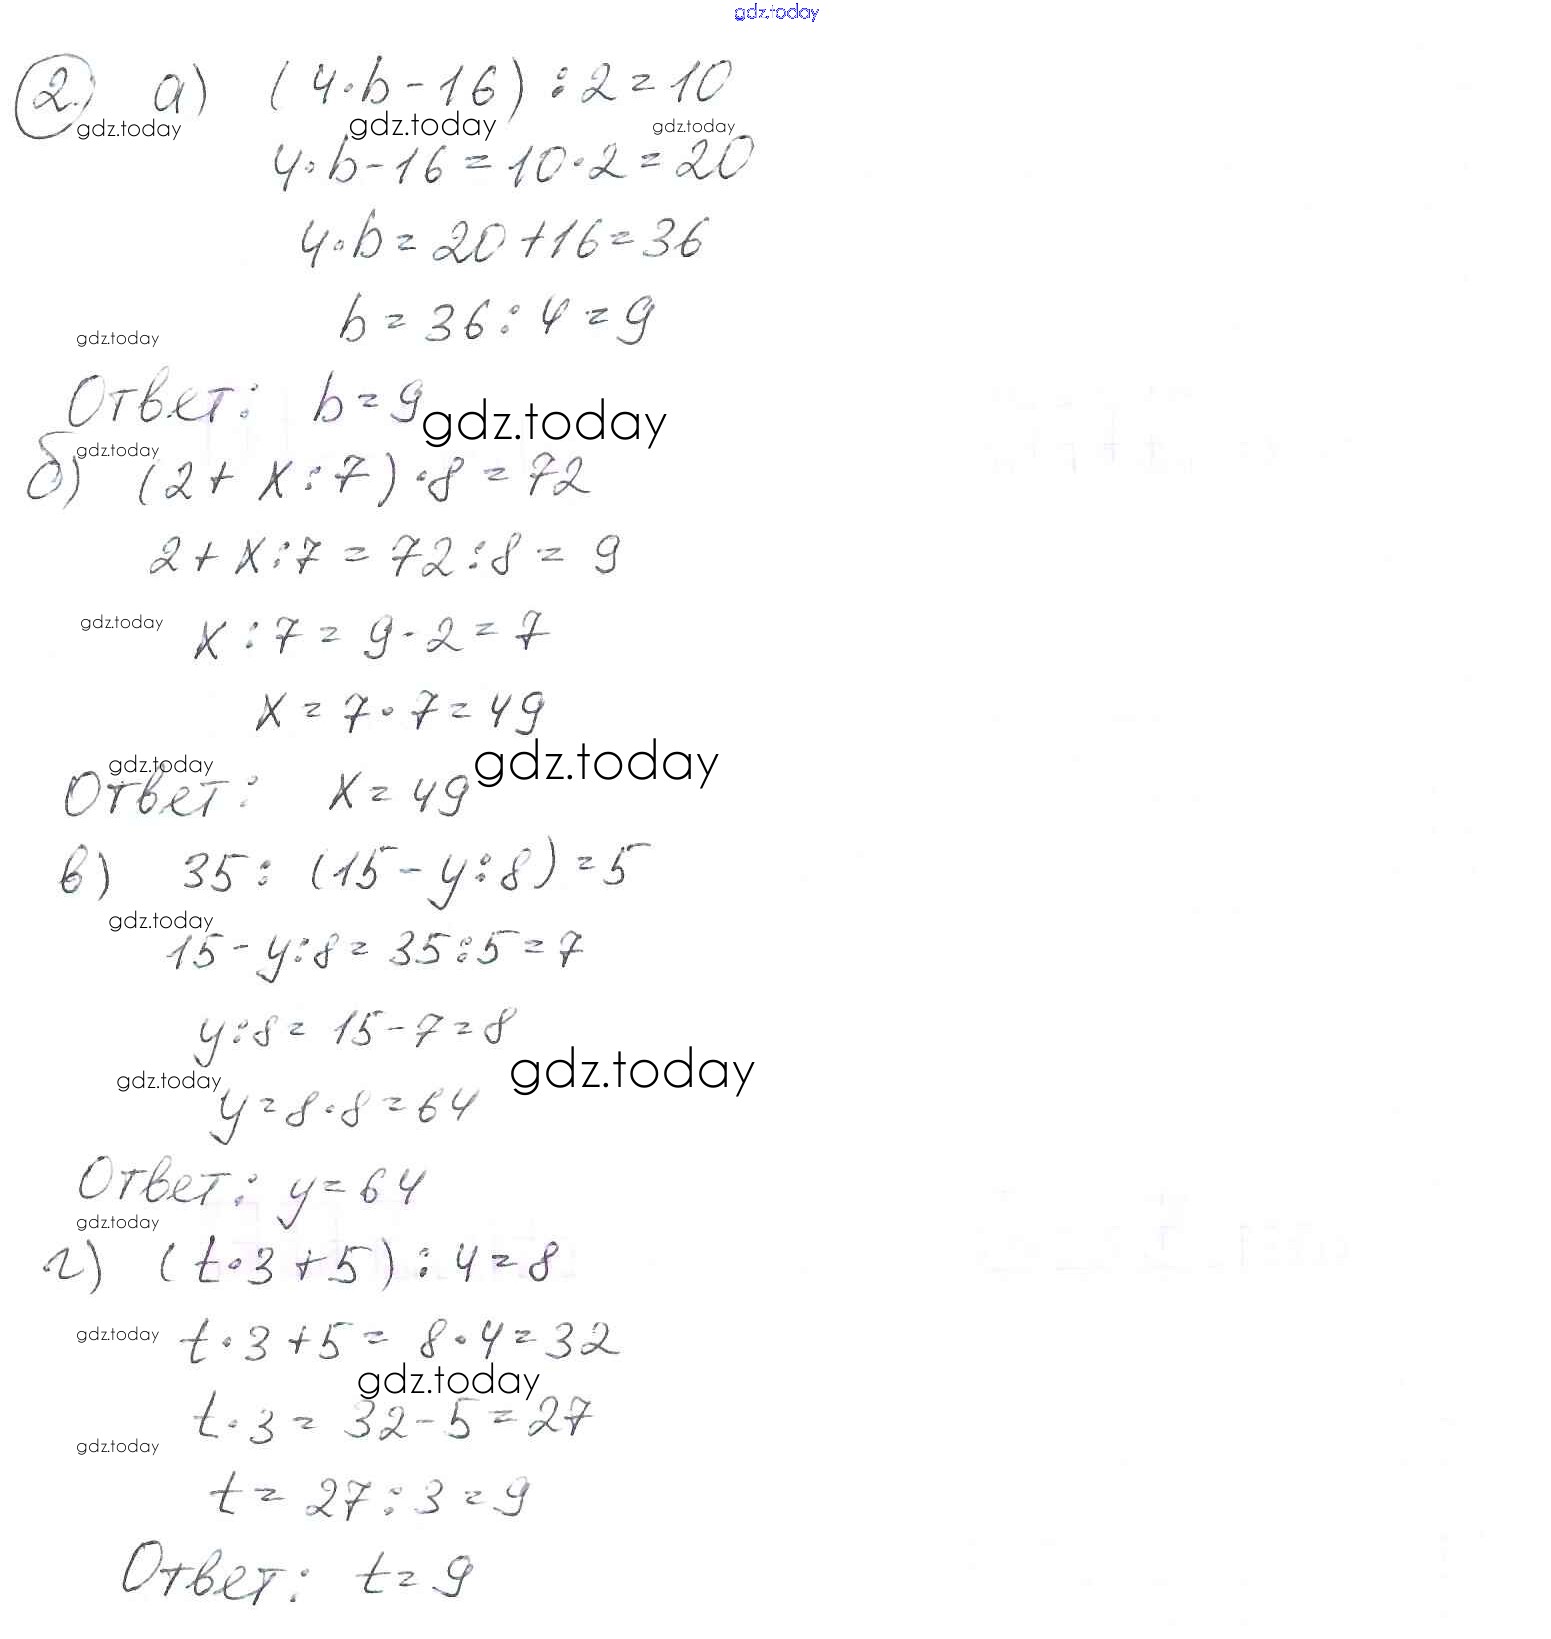 gdz.today
2. а) (4·b-16):2=10
gdz.today gdz.today gdz.today
4·b-16=10·2=20
4·b=20+16=36
b=36:4=9
gdz.today
Ответ: b=9
gdz.today
gdz.today
б) (2+x:7)·8=72
2+x:7=72:8=9
gdz.today
x:7=9-2=7
x=7·7=49
gdz.today gdz.today
Ответ: x=49
в) 35:(15-y:8)=5
gdz.today
15-y:8=35:5=7
y:8=15-7=8
gdz.today gdz.today
y=8·8=64
Ответ: y=64
gdz.today
г) (t·3+5):4=8
gdz.today
t·3+5=8·4=32
gdz.today
t·3=32-5=27
gdz.today
t=27:3=9
Ответ: t=9